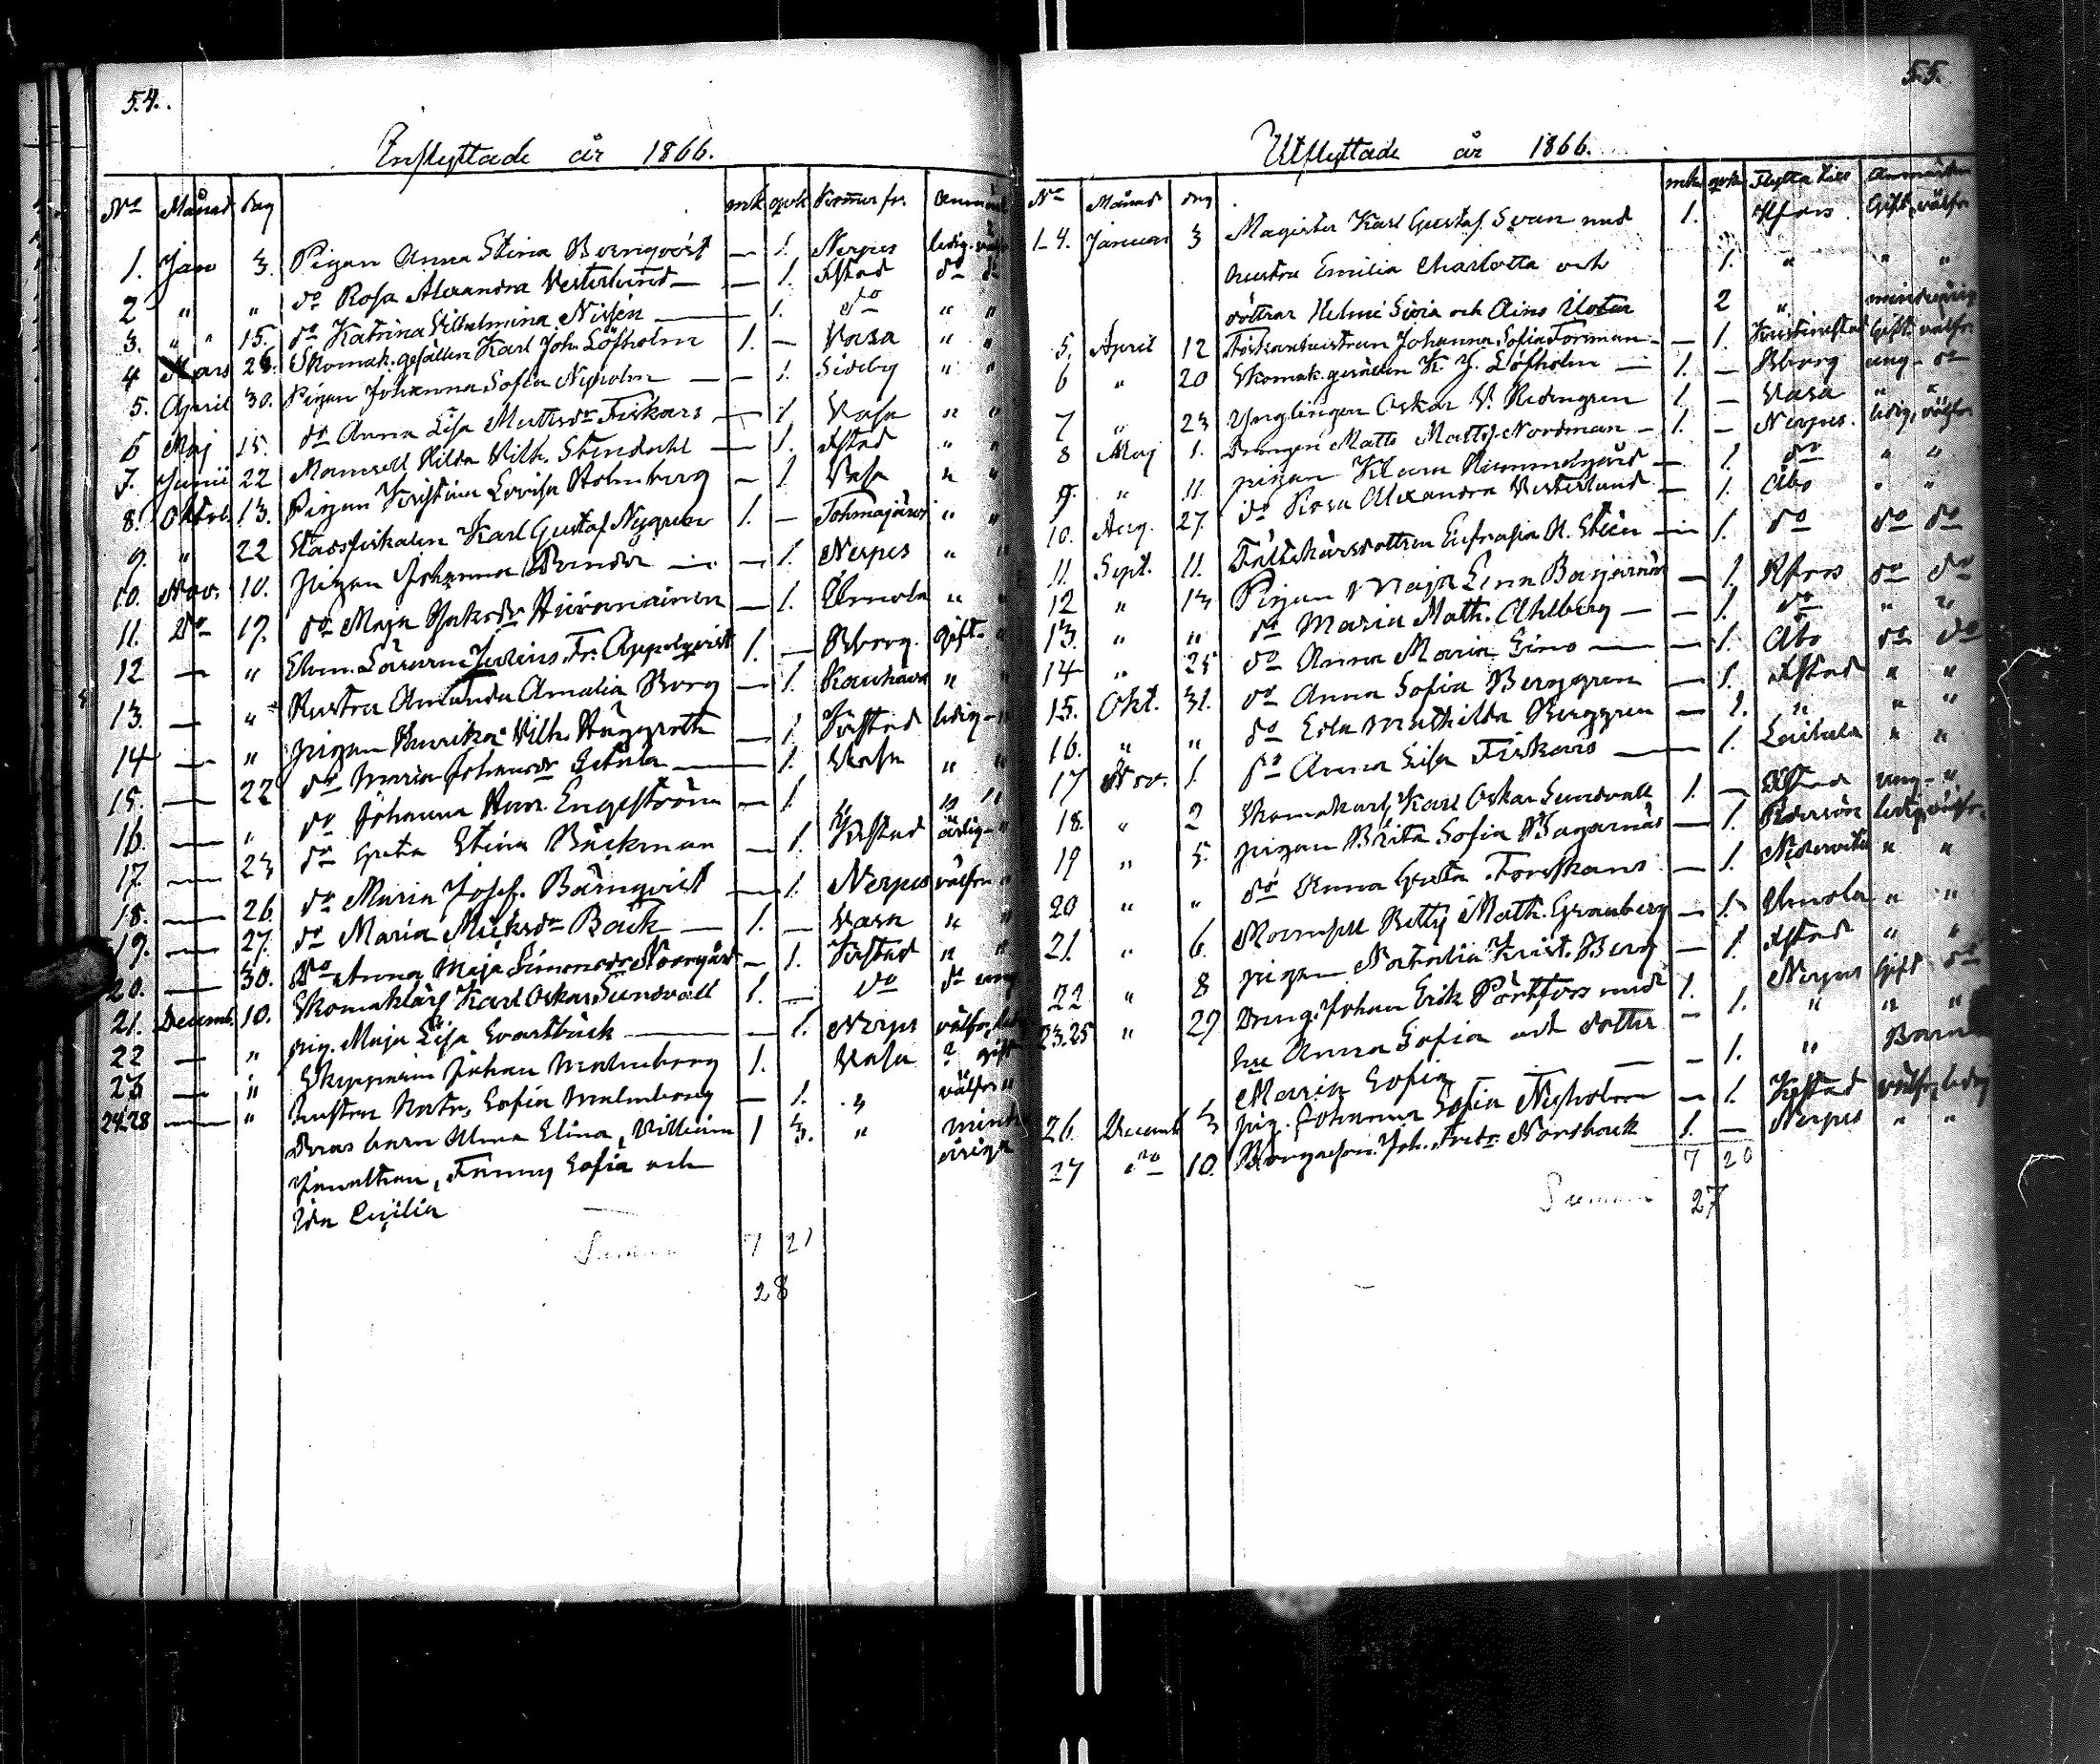 54.
Inflyttade år 1866.
No Månad dag mk qvk Kommer fr. Anmärk
1. Jan 3. Pigan Anna Stina Berngvist — 1. Nerpes ledig. välfr
2 " " do Rosa Alexandra Vesterlund — — 1. Kstad do do
3. " " 15. do Katrina Vilhelmina Nissén — 1. do " "
4 Mars 28. Skomak. gesällen Karl Joh. Löfholm 1. — Vasa " "
5. April 30. Pigan Johanna Sofia Nyholm — — 1. Sideby " "
6 Maj 15. do Anna Lisa Mattsdr Fiskars — 1 Vasa " "
7. Junii 22 Mamsell Hilda Vilh. Stendahl — 1. Kstad " "
8. Oktob. 13. Pigan Kristina Lovisa Holmberg — 1 Vasa " "
9. " 22 Stadsfiskalen Karl Gustaf Nygren 1. — Tohmajärvi " "
10. Nov. 10. pigan Johanna — — 1. Nerpes " "
11. do 17. do Maja Jakobsdr — 1. Ulmola " "
12 — " Julius Fr. Appelqvist 1. — Bborg. gift "
13. — " Hustru Amanda Amalia Borg — 1. Kauhava " "
14 — " pigan Ulrika Vilh. Häggroth — 1 Kstad ledig "
15. — 22 do Maria Johansdr — 1. Vasa " "
16. — " do Johanna Engström — 1. " " "
17. — 23 do Greta Stina Bäckman — 1. Kristad ledig "
18. — 26. do Maria Josef. Bärnqvist — 1. Nerpes välfr "
19. — 27. do Maria Micksdr Back — 1. — Vasa " "
20. — 30. do Anna Maja Simonsdr Norrgård — 1. Kristad " "
21. Decemb. 10. Skomaklärl. Karl Oskar Sundvall 1. — do do ung
22 — " pig. Maja Lisa Svartbäck — — 1. Nerpes välfr, led
23 — " Skepparen Johan Malmberg 1. Vasa ? gift
24.28 — " hustru Sofia Malmberg — 1. " välfr "
Deras barn Alma Elina, William 1 3. " minder
Jonathan, Fanny Sofia och åriga
Ida Cecilia
Summa 7 21
28
55.
Utflyttade år 1866.
No Månad dag mk qvk Flytta till Anmärkn
1-4. Januari 3 Magister Karl Gustaf Svan med 1. Hfors Gift, välfr
hustru Emilia Charlotta och 1. " " "
döttrar Helmi Siviä och Aino 2 " minderårig
5. April 12 Johanna Sofia Forsman — — 1. Kristinestad Gift välfr.
6 " 20 Skomak. gesällen K. J. Löfholm — 1. — Bborg ung do
7 " 23 Ynglingen Oskar V. Redengren 1 — Vasa " "
8 Maj 1. Drengen Matts Matts. Nordman — 1. — Nerpes. ledig, välfr.
9. " 11. pigan Klara — 1. do " "
10. Aug. 27. do Rosa Alexandra Vesterlund — 1. Åbo " "
11. Sept. 11. Fältskärsdottren Eufrosia — 1. do do do
12 " 13 Pigan Maja Lena — 1. Hfors do do
13. " " do Maria Math. Ahlberg — — 1. do " "
14 " 25 do Anna Maria Simo — — 1. Åbo do do
15. Okt. 31. do Anna Sofia Berggren — 1. Kstad " "
16. " " do Eda Mathilda Berggren — 1. " " "
17 Nov. 1. do Anna Lisa Fiskars — 1. Laihela " "
18. " 2 Skomaklärl. Karl Oskar Sundvall 1. — Kstad ung "
19 " 5. pigan Brita Sofia Bagarnäs — 1. ledig, välfr.
20 " " do Anna Greta Forsskans — 1. Nedervetil " "
21. " 6. Mamsell Betty Math. Granberg — 1. Ulmola " "
22 " 8 pigan Natalia Krist. Berg — 1. Kstad " "
23.25 " 29 Dreng. Johan Erik Pörtfors med 1. Nerpes Gift do
hu Anna Sofia och dotter — 1. " " "
Maria Sofia — — 1. " Barn
26 Decemb 3 pig. Johanna Sofia Nyholm — 1. Kstad välfr, ledig
27 do 10. Joh. Norrback 1. — Nerpes " "
7 20
Summa 27